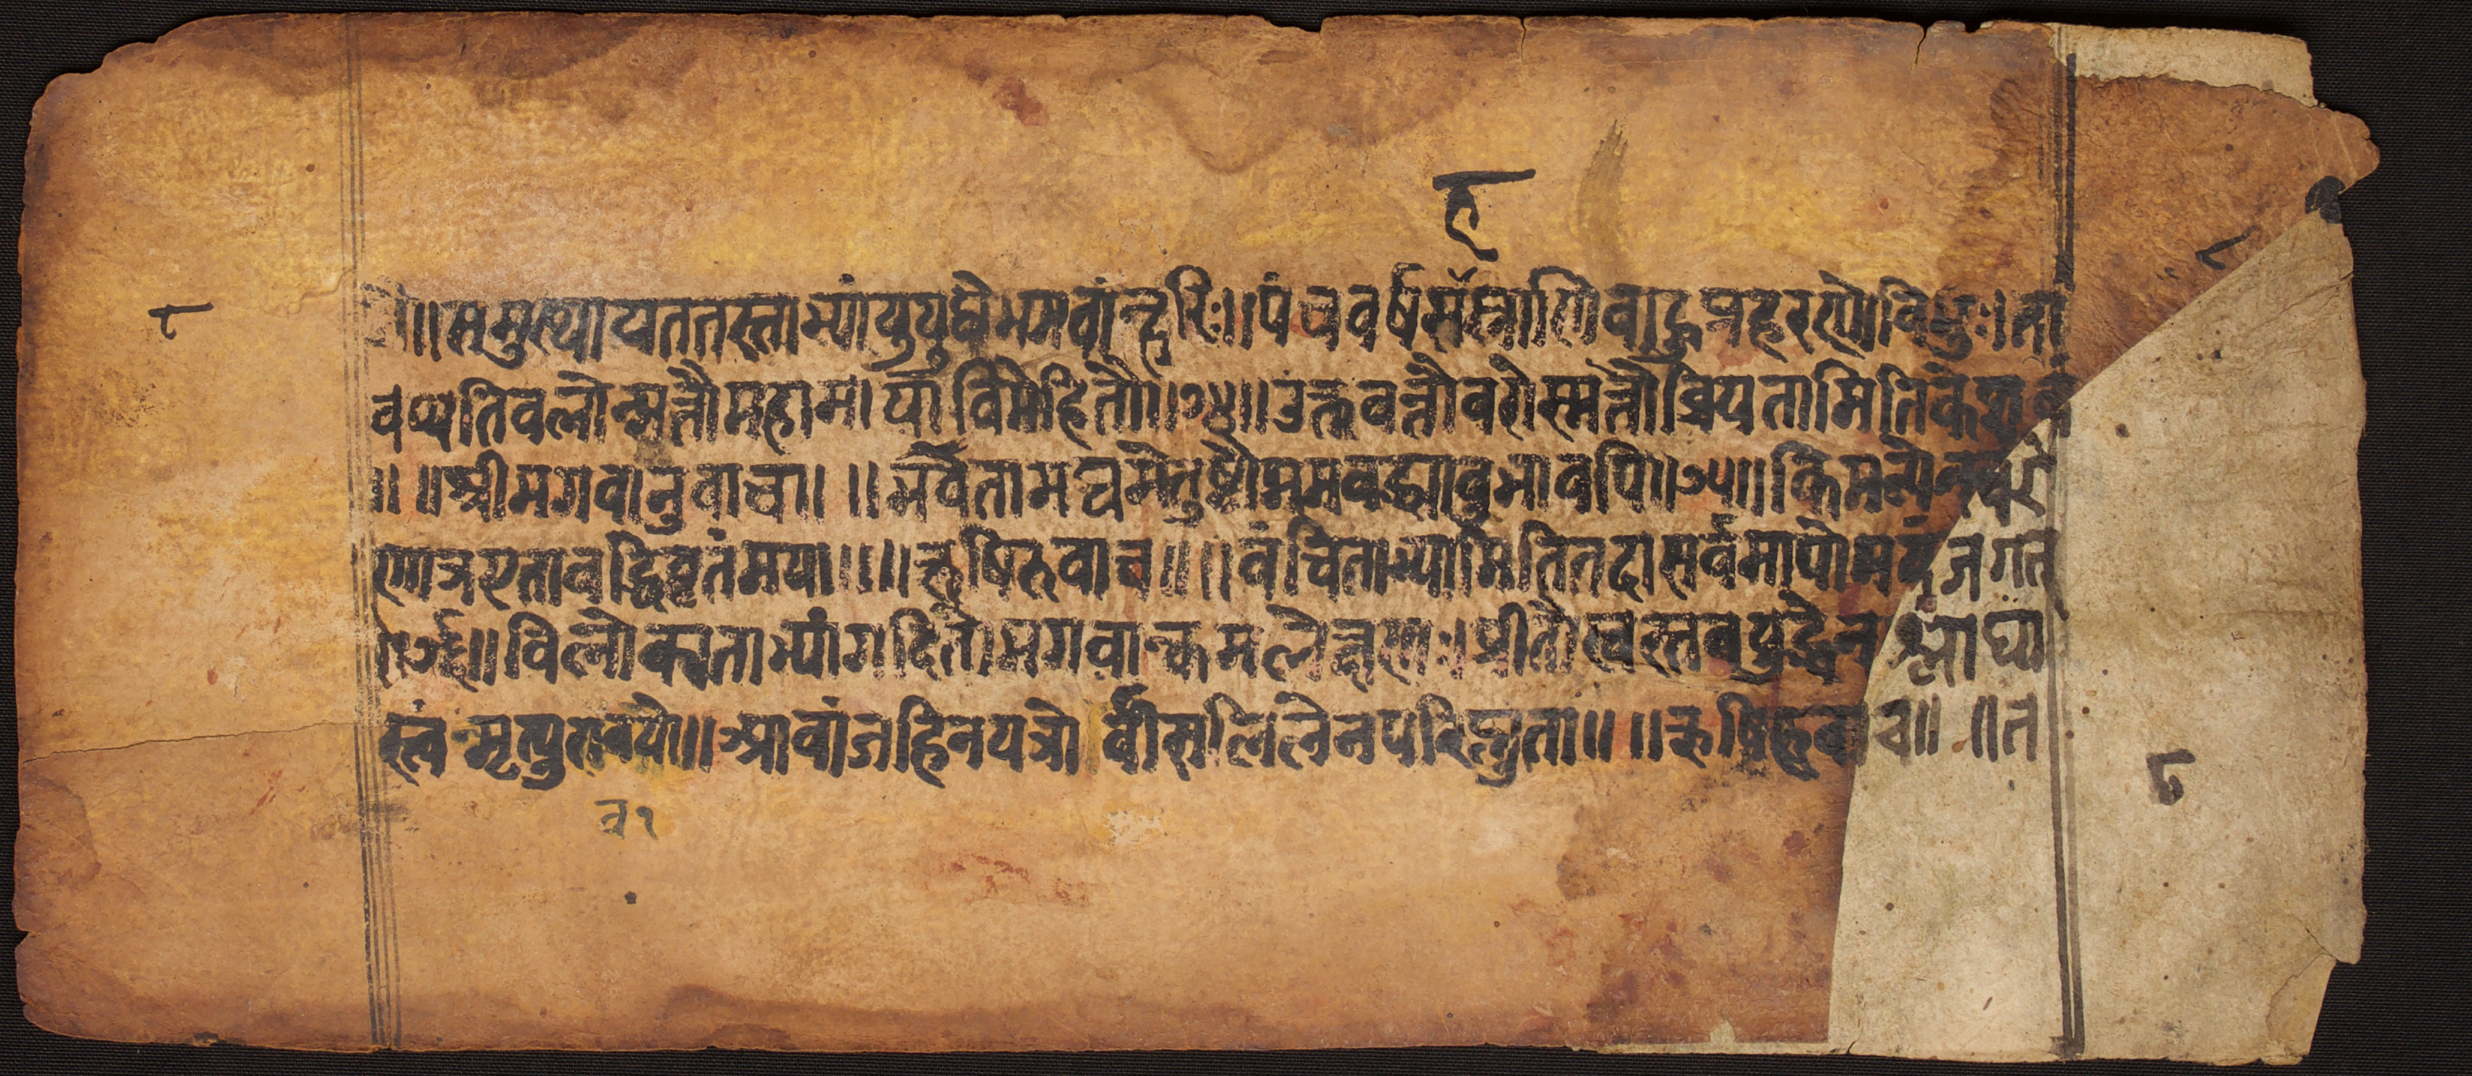 ह
॥ समुत्थाय ततस्ताभ्यां युयुधे भगवान्हरिः। पंचवर्षसहस्राणि बाहुप्रहरणो विभुः। ता
वप्यतिवलोन्मत्तौ महामायाविमोहितौ॥७४॥ उक्तवन्तौ वरोस्मत्तो व्रियतामिति केशवं
॥ ॥ श्रीभगवानुवाच॥ ॥ भवेतामद्य मे तुष्टौ मम वध्यावुभावपि॥७५॥ किमन्येन वरे
णात्र एतावद्धि वृतं मया॥ ॥ ऋषिरुवाच॥ ॥ वंचिताभ्यामिति तदा सर्वमापोमयं जगत्
॥७६॥ विलोक्य ताभ्यां गदितो भगवान्कमलेक्षणः। प्रीतौ स्वस्तव युद्धेन श्लाघ्य
स्त्वं मृत्युरावयोः॥ आवां जहि न यत्रोर्वी सलिलेन परिप्लुता॥ ॥ ऋषिरुवाच॥ ॥ त
८